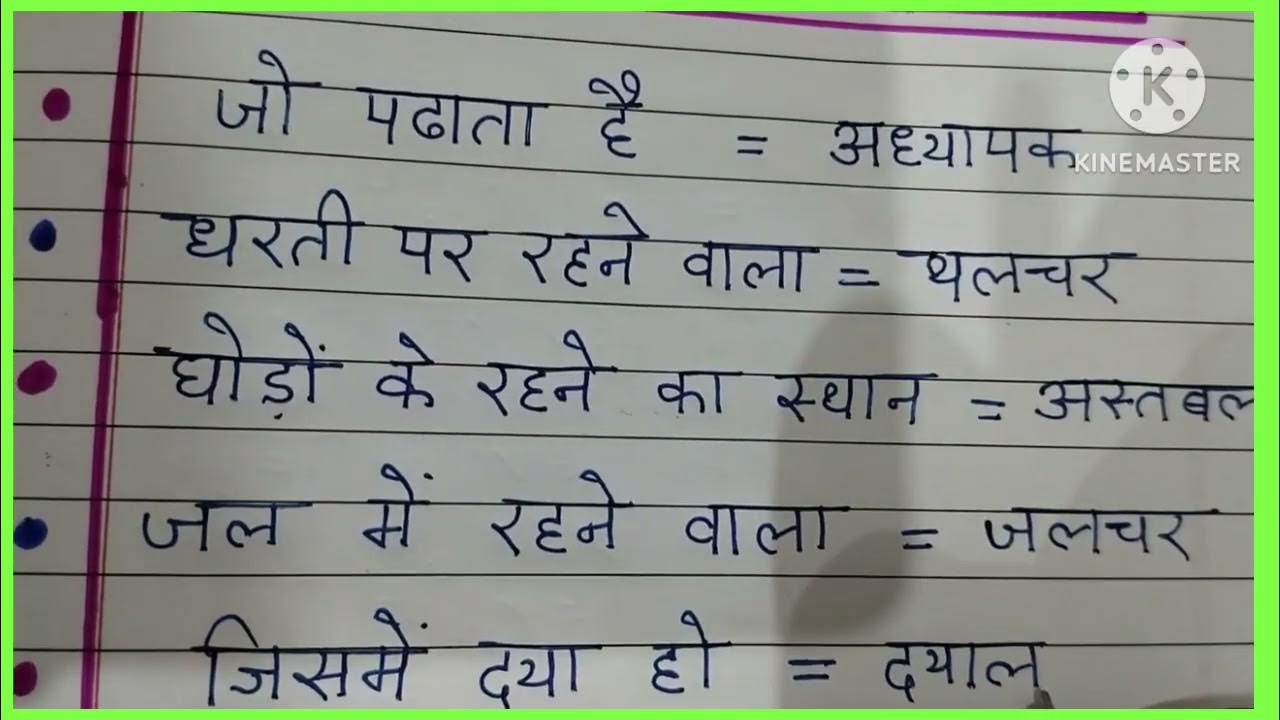 जो पढाता है = अध्यापक
KINEMASTER
धरती पर रहने वाला = थलचर
घोड़ों के रहने का स्थान = अस्तबल
जल में रहने वाला = जलचर
जिसमें दया हो = दयाल